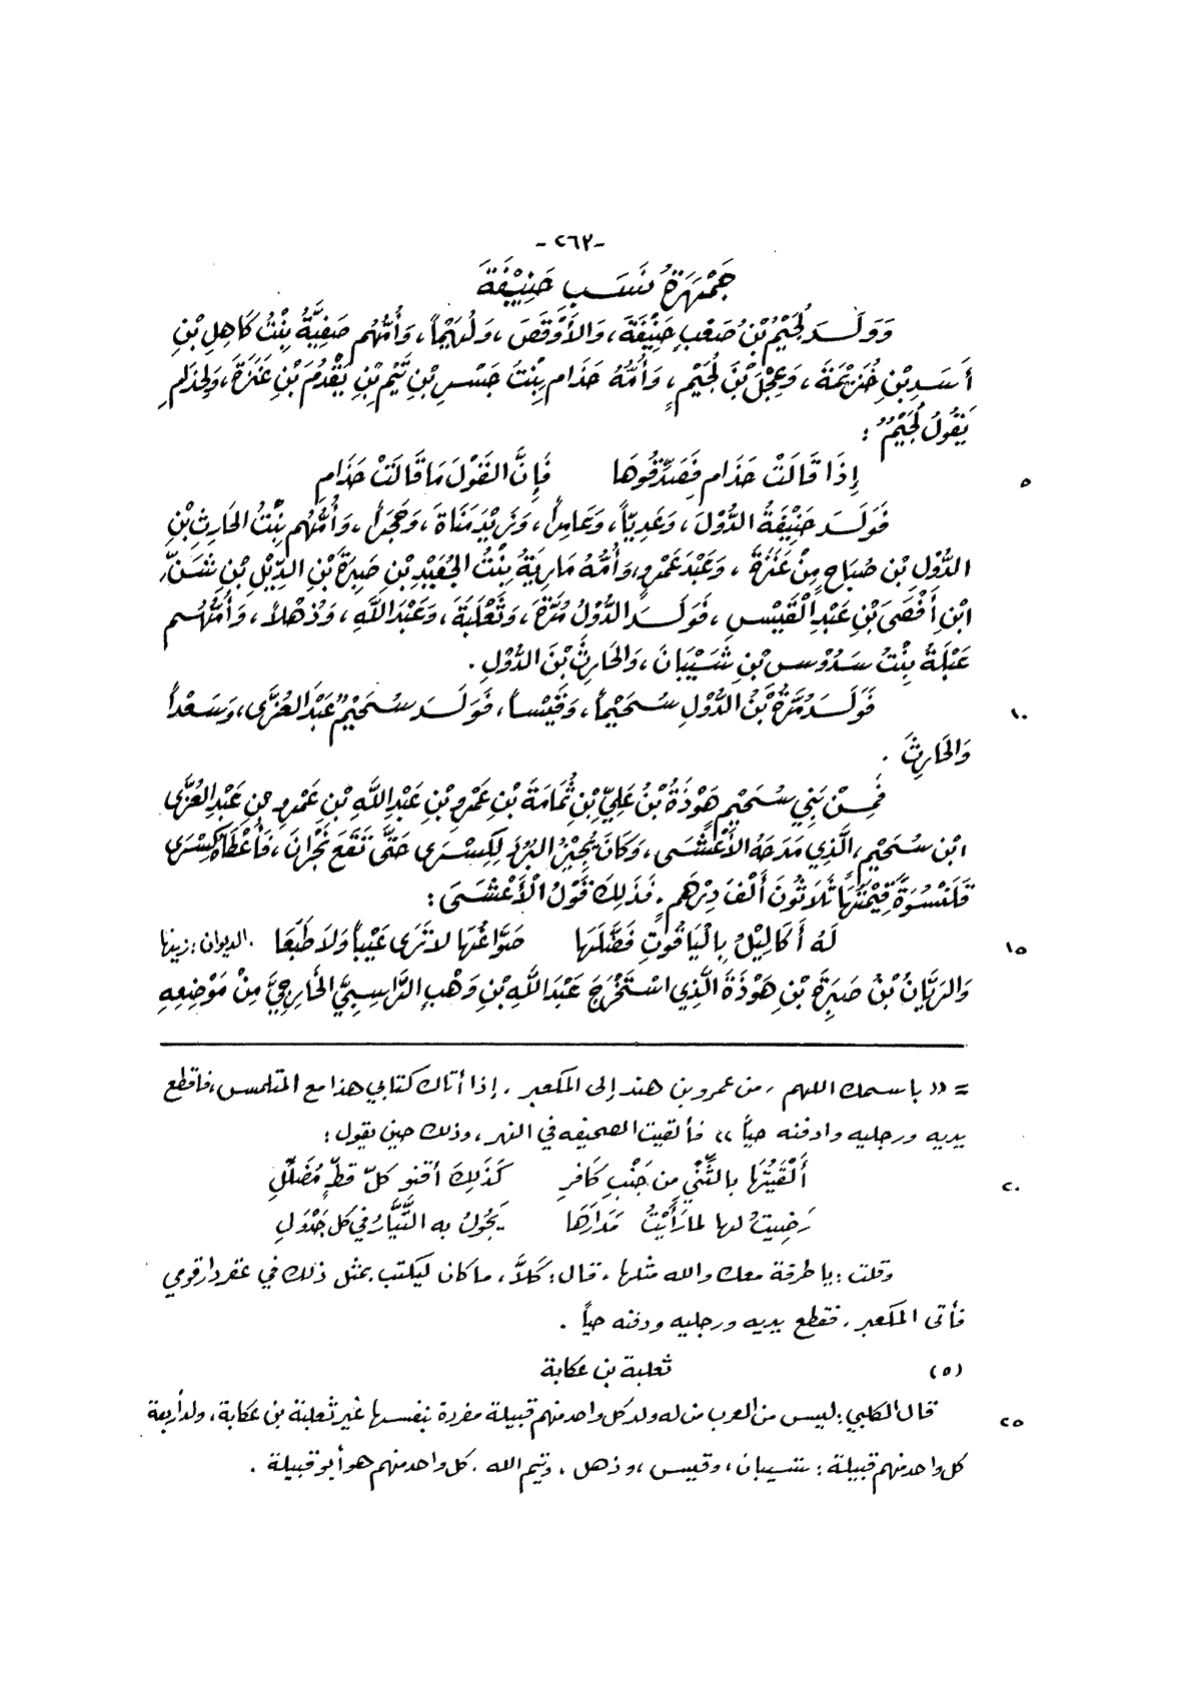 -٢٦٢-
جَمْهَرَةُ نَسَبِ حَنِيْفَةَ
وَوَلَدَ لُجَيْمُ بْنُ صَعْبٍ حَنِيْفَةَ، وَالأَوْقَصَ، وَلُهَيْماً، وَأُمُّهُم صَفِيَّةُ بِنْتُ كَاهِلِ بْنِ
أَسَدِ بْنِ خُزَيْمَةَ، وَعِجْلَ بْنَ لُجَيْمٍ، وَأُمُّهُ حَذَامِ بِنْتُ جَسْرِ بْنِ تَيْمِ بْنِ يَقْدُمَ بْنِ عَنَزَةَ، وَلِحَذَامِ
يَقُولُ لُجَيْمٌ :
إِذَا قَالَتْ حَذَامِ فَصَدِّقُوهَا فَإِنَّ القَوْلَ مَا قَالَتْ حَذَامِ ٥
فَوَلَدَ حَنِيْفَةُ الدُّوْلَ، وَعَدِيّاً، وَعَامِراً، وَزَيْدَ مَنَاةَ، وَحَجَراً، وَأُمُّهُم بِنْتُ الحَارِثِ بْنِ
الدُّوْلِ بْنِ صُبَاحٍ مِنْ عَنَزَةَ، وَعَبْدَ عَمْرٍو، وَأُمُّهُ مَارِيَةُ بِنْتُ الجُعَيْدِ بْنِ صَبِرَةَ بْنِ الدِّيْلِ بْنِ شَنِّ
ابْنِ أَفْصَى بْنِ عَبْدِ الْقَيْسِ، فَوَلَدَ الدُّوْلُ مُرَّةَ، وَثَعْلَبَةَ، وَعَبْدَ اللَّهِ، وَذُهْلاً، وَأُمُّهُم
عَبْلَةُ بِنْتُ سَدُوْسِ بْنِ شَيْبَانَ، وَالحَارِثَ بْنَ الدُّوْلِ .
فَوَلَدَ مُرَّةُ بْنُ الدُّوْلِ سُحَيْماً، وَقَيْساً، فَوَلَدَ سُحَيْمٌ عَبْدَ العُزَّى، وَسَعْداً ١٠
وَالحَارِثَ .
فَمِنْ بَنِي سُحَيْمٍ هَوْذَةُ بْنُ عَلِيِّ بْنِ ثُمَامَةَ بْنِ عَمْرِو بْنِ عَبْدِ اللَّهِ بْنِ عَمْرِو بْنِ عَبْدِ العُزَّى
ابْنِ سُحَيْمٍ، الَّذِي مَدَحَهُ الأَعْشَى، وَكَانَ يُجِيْزُ البُرُدَ لِكِسْرَى حَتَّى تَقَعَ نَجْرَانَ، فَأَعْطَاهُ كِسْرَى
قَلَنْسُوَةً قِيْمَتُهَا ثَلَاثُونَ أَلْفَ دِرْهَمٍ، فَذَلِكَ قَوْلُ الأَعْشَى :
لَهُ أَكَالِيْلُ بِالْيَاقُوتِ فَصَّلَهَا صَوَّاغُهَا لا تَرَى عَيْباً وَلا طَبَعَا الديوان: زينها ١٥
وَالرَيَّانُ بْنُ صَبِرَةَ بْنِ هَوْذَةَ الَّذِي اسْتَخْرَجَ عَبْدَ اللَّهِ بْنِ وَهْبٍ الرَّاسِبِيَّ الخَارِجِيَّ مِنْ مَوْضِعِهِ
= «باسمك اللهم، من عمرو بن هند إلى المكعبر. إذا أتاك كتابي هذا مع المتلمس، فاقطع
يديه ورجليه وادفنه حياً» فألقيت الصحيفه في النهر، وذلك حين يقول :
أَلْقَيْتُهَا بالثِّنْيِ مِن جَنْبِ كَافرِ كَذَلِكَ أقنو كلّ قطّ مُضَلَّلِ ٢٠
رَضِيتُ لها لما رَأَيْتُ مَدَارَهَا يَجُولُ به التَّيَّارُ في كل جَدْوَلِ
وقلت : يا طرفة معك والله مثلها، قال : كَلاَّ، ما كان ليكتب بمثل ذلك في عقر دار قومي
فأتى المكعبر، فقطع يديه ورجليه ودفنه حياً .
(٥) ثعلبة بن عكابة
قال الكلبي : ليس من العرب من له ولد كل واحد منهم قبيلة مفردة بنفسها غير ثعلبة بن عكابة، ولد أربعة ٢٥
كل واحد منهم قبيلة : شيبان، وقيس، وذهل، وتيم الله. كل واحد منهم هو أبو قبيلة .